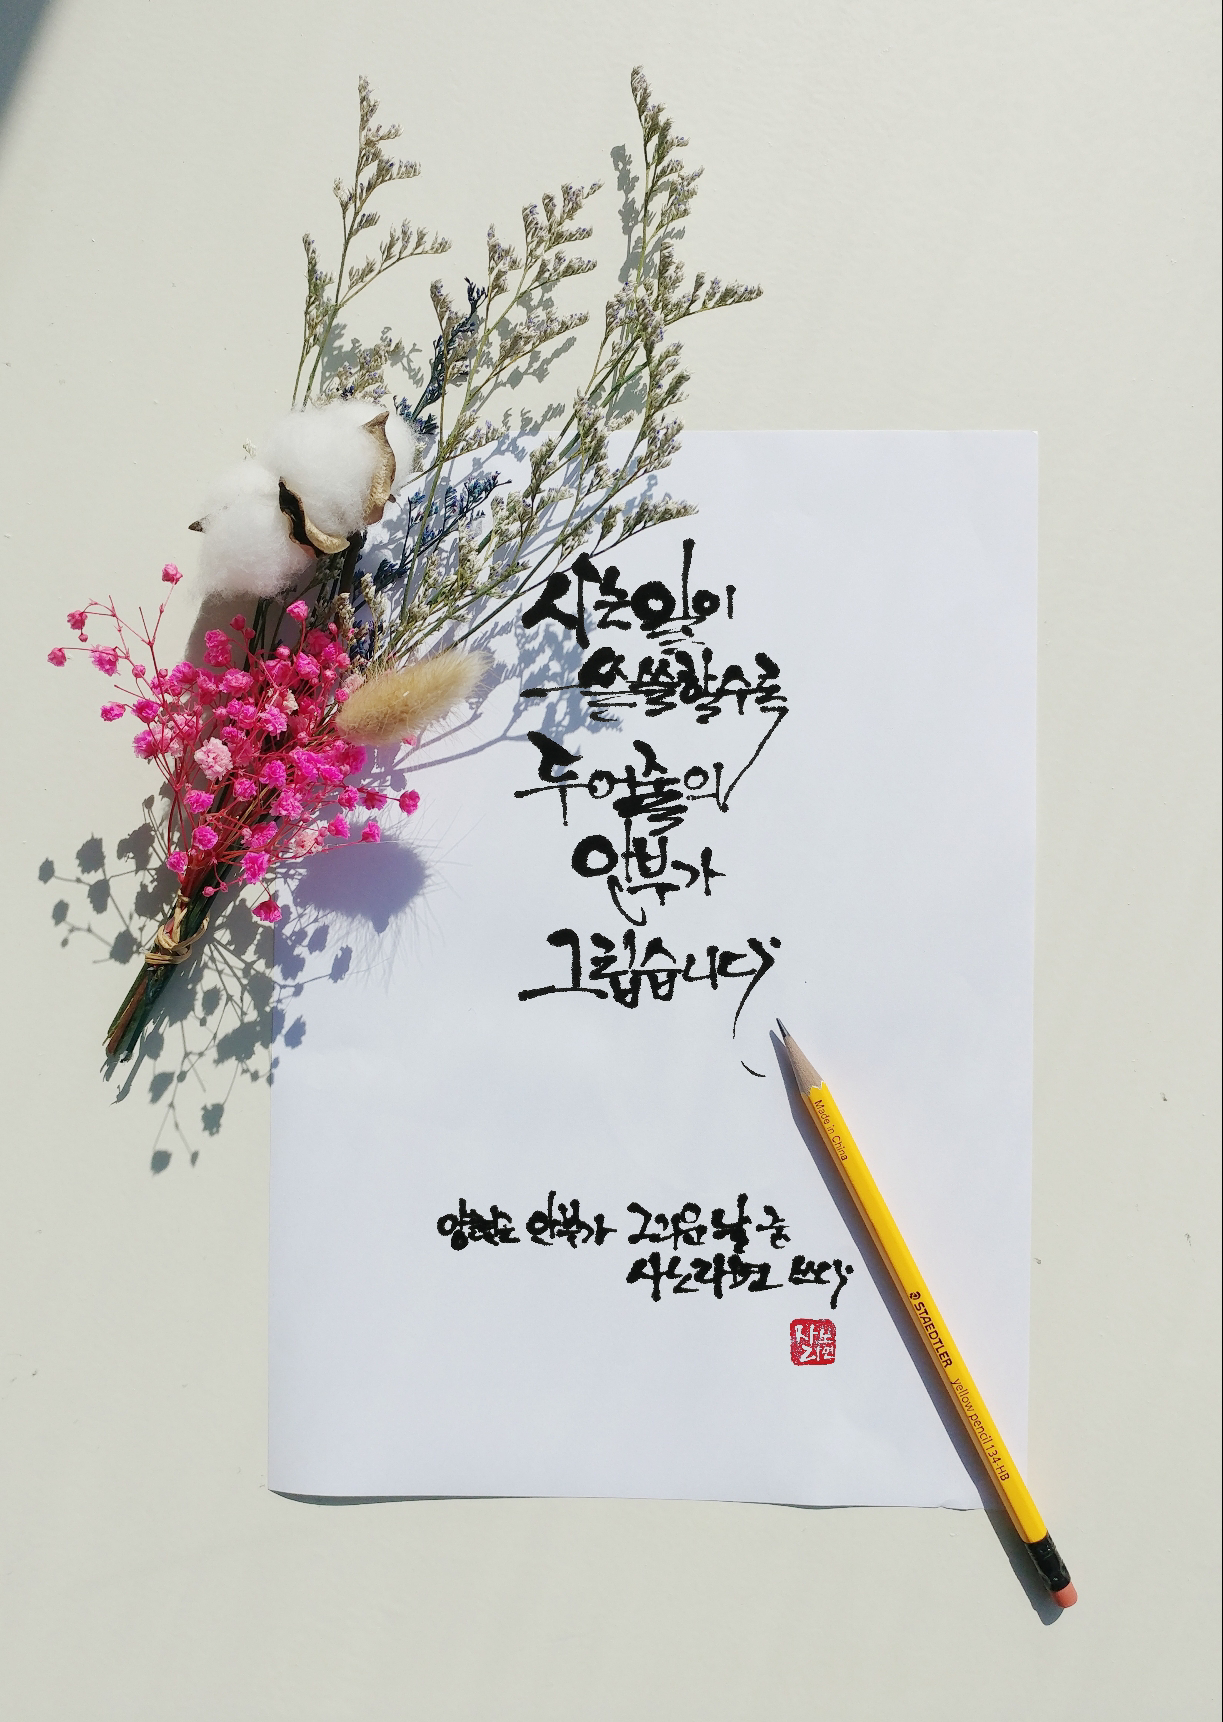 사는 일이
쓸쓸할수록
두어줄의
안부가
그립습니다
안부가 그리운 날 중
사노라면 쓰다
Made in China
STAEDTLER yellow pencil 134-HB